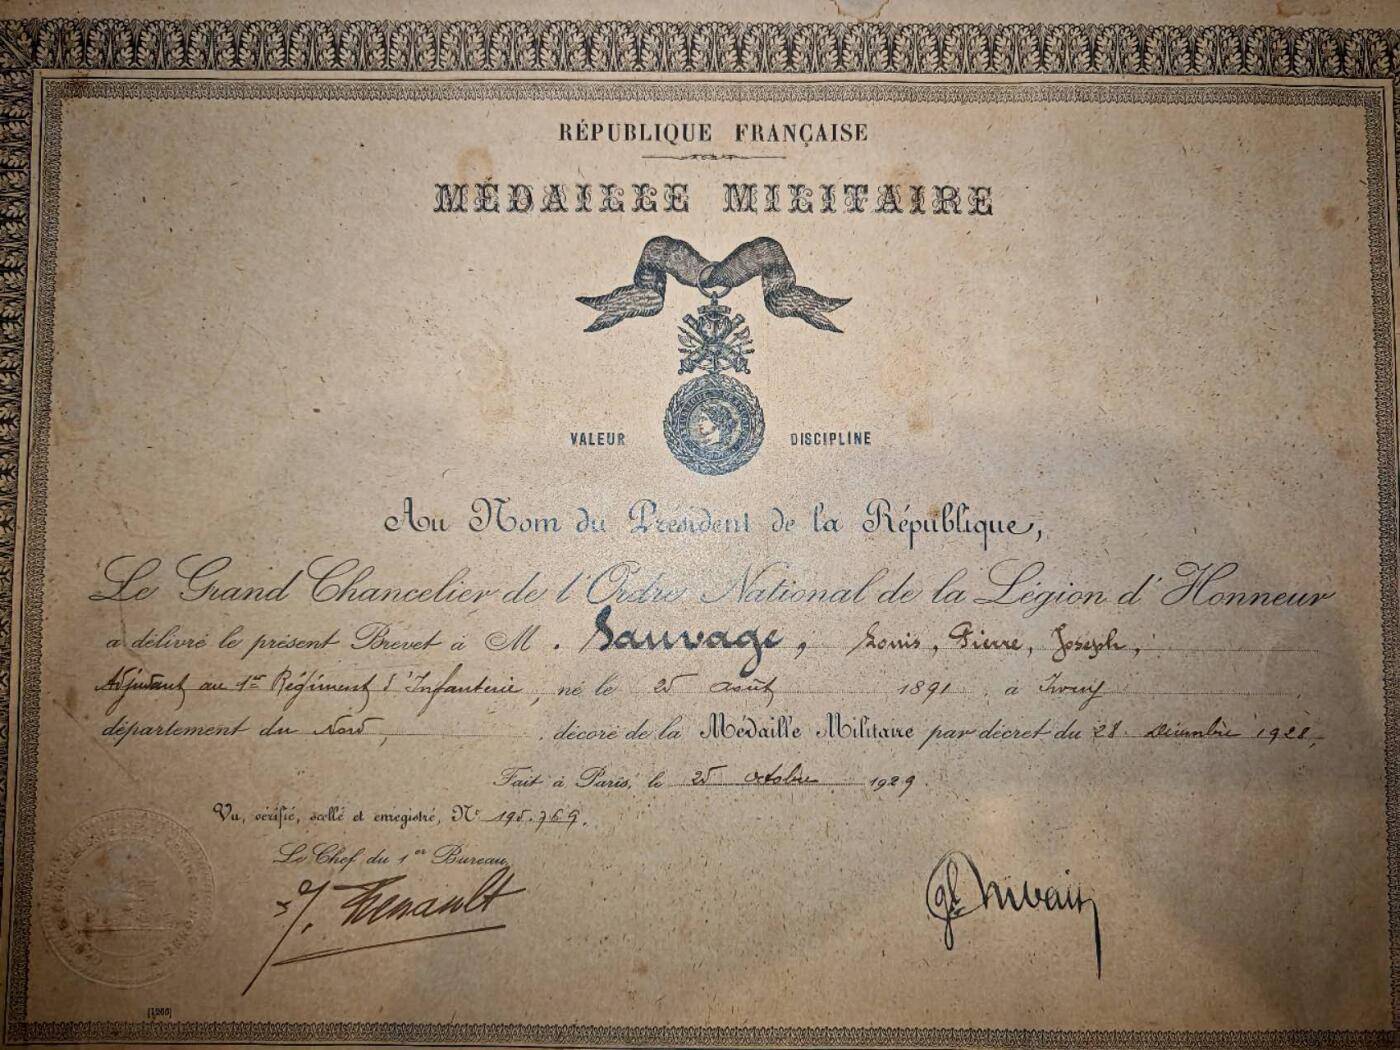 RÉPUBLIQUE FRANÇAISE
MÉDAILLE MILITAIRE
VALEUR DISCIPLINE
Au Nom du Président de la République,
Le Grand Chancelier de l'Ordre National de la Légion d'Honneur
a délivré le présent Brevet à M. Sauvage, Louis, Pierre, Joseph,
Adjudant au 1er Régiment d'Infanterie, né le 25 août 1891, à Iwuy
département du Nord, décoré de la Médaille Militaire par décret du 28 Décembre 1928,
Fait à Paris, le 25 octobre 1929.
Vu, vérifié, scellé et enregistré, N° 195.769.
Le Chef du 1er Bureau,